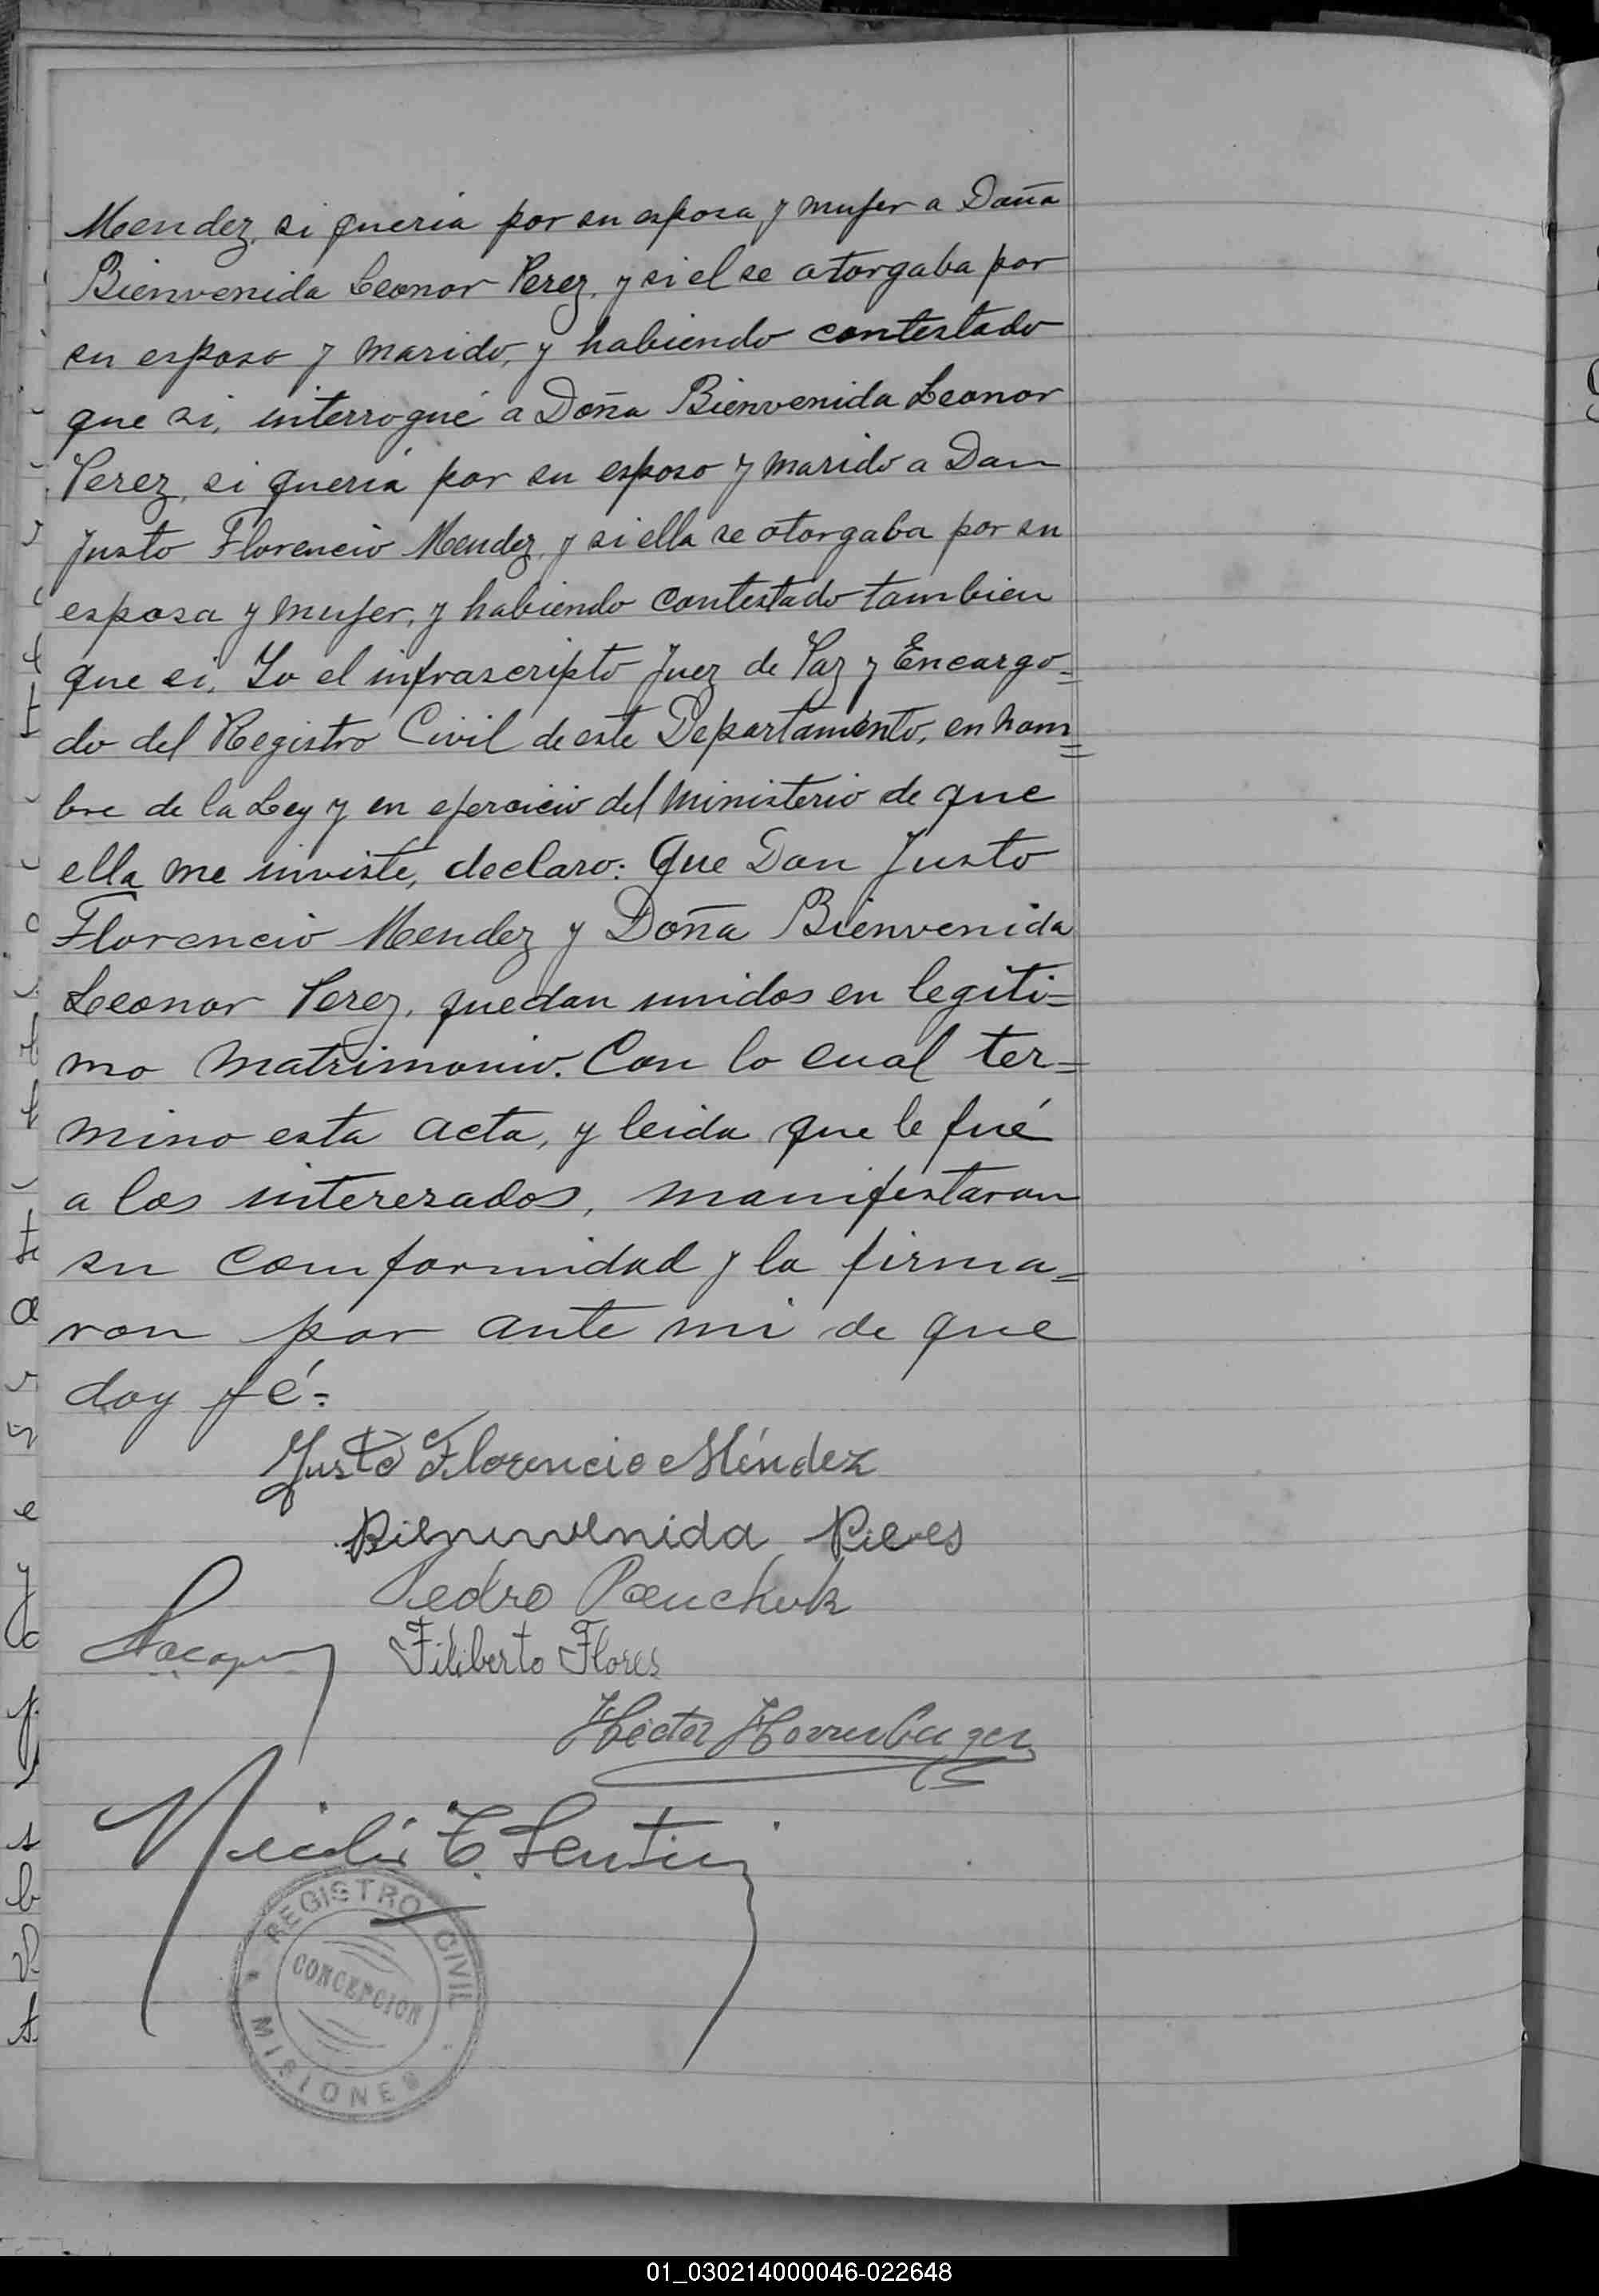 Mendez, si queria por su esposa y mujer a Doña
Bienvenida Leonor Perez, y si el se otorgaba por
su esposo y marido, y habiendo contestado
que si, interrogué a Doña Bienvenida Leonor
Perez, si quería por su esposo y marido a Don
Justo Florencio Mendez, y si ella se otorgaba por su
esposa y mujer, y habiendo contestado tambien
que si. Yo el infrascripto Juez de Paz y Encarga=
do del Registro Civil de este Departamento, en nom=
bre de la Ley y en ejercicio del ministerio de que
ella me inviste, declaro: Que Don Justo
Florencio Mendez y Doña Bienvenida
Leonor Perez, quedan unidos en legiti=
mo matrimonio. Con lo cual ter=
mino esta acta, y leida que le fué
a los interesados, manifestaron
su comformidad y la firma=
ron por ante mi de que
doy fé=
Justo Florencio Méndez
Bienvenida
Pedro Panchuk
Filiberto Flores
Hector
REGISTRO CIVIL
CONCEPCION
MISIONES
01_030214000046-022648